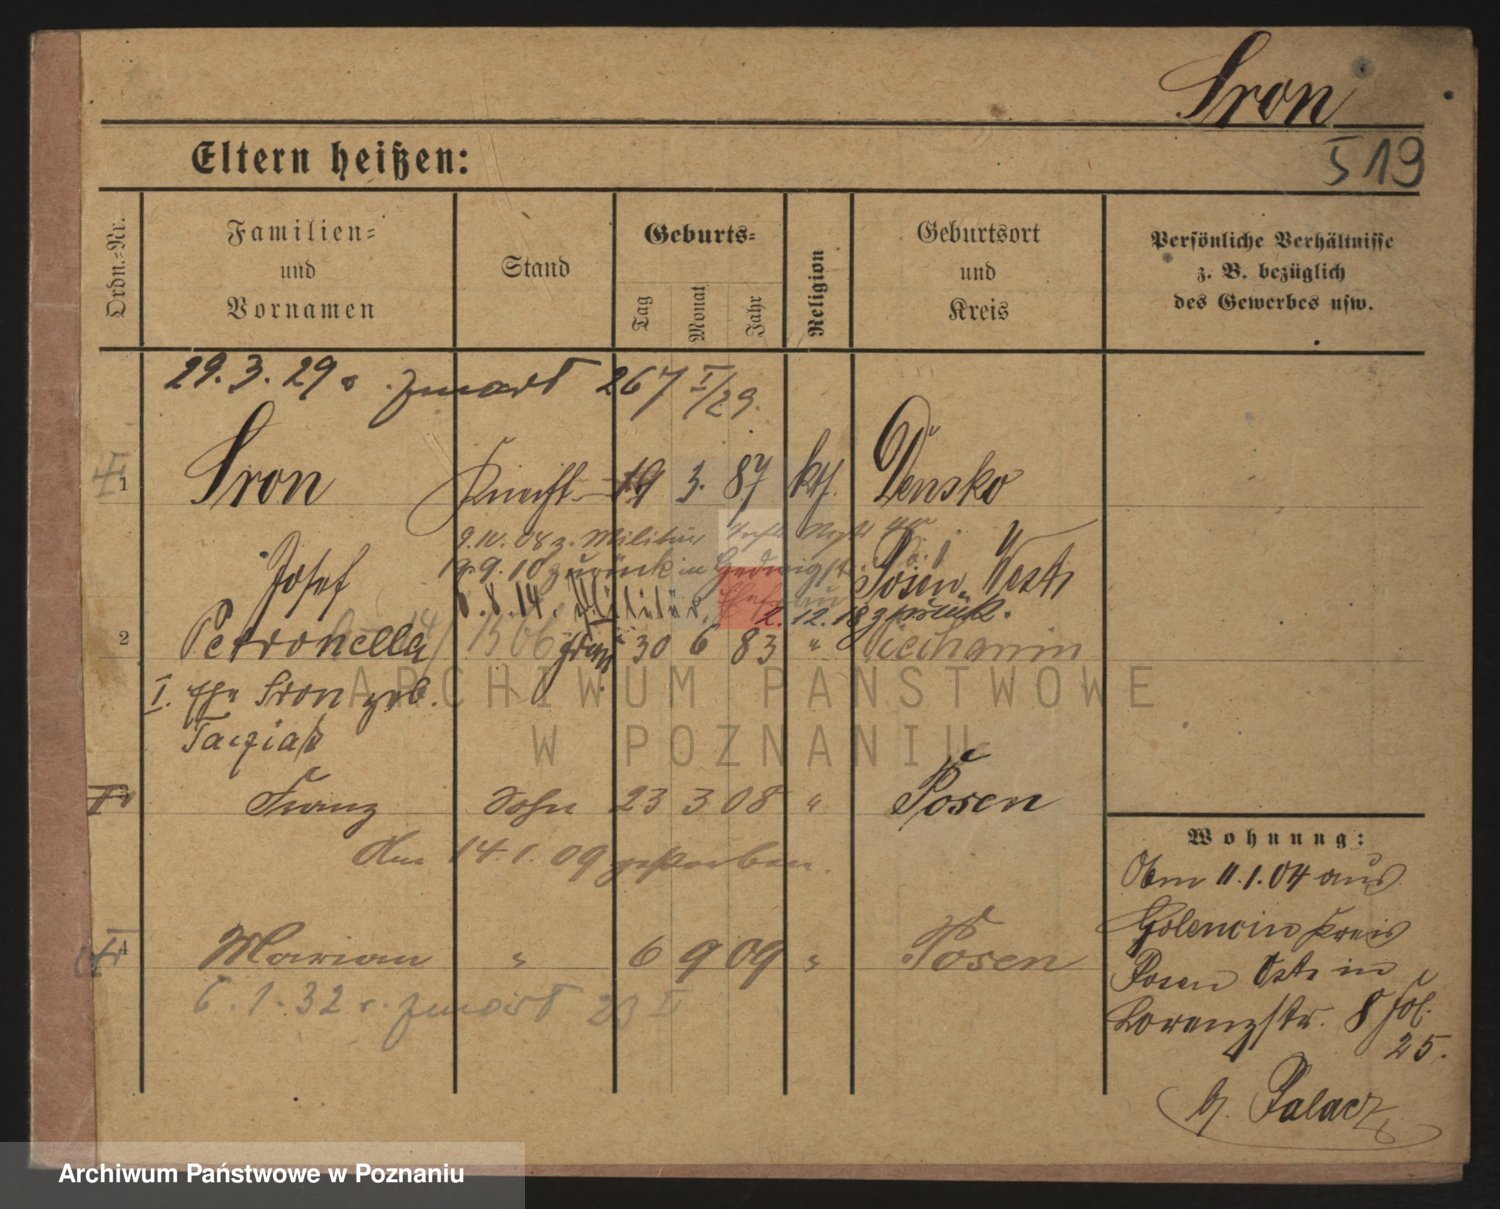 Sron
519
Eltern heißen:
Ordn.-Nr.
Familien-
und
Vornamen
Stand
Geburts-
Tag
Monat
Jahr
Religion
Geburtsort
und
Kreis
Persönliche Verhältnisse
z. B. bezüglich
des Gewerbes usw.
29. 3. 29 zmarł 267 I/29.
1 Sron Knecht 19 3. 87 kth. Densko
9.10.08 z. Militär
Josef 19.9.10 zurück in Posen West
8.8.14. Militär, 2.12.18 zurück.
2 Petronella Frau 30 6 83 " Ciechanin
I. Ehe Sron geb.
Taciak
Franz Sohn 23 3 08 " Posen
Am 14.1.09 gestorben.
4 Marian " 6 9 09 " Posen
6.1.32 zmarł 23 II
Wohnung:
Am 11.1.04 aus
Golencin Kreis
Posen Ost in
Lorenzstr. 8 Fol.
25.
b. Palacz
ARCHIWUM PAŃSTWOWE
W POZNANIU
Archiwum Państwowe w Poznaniu